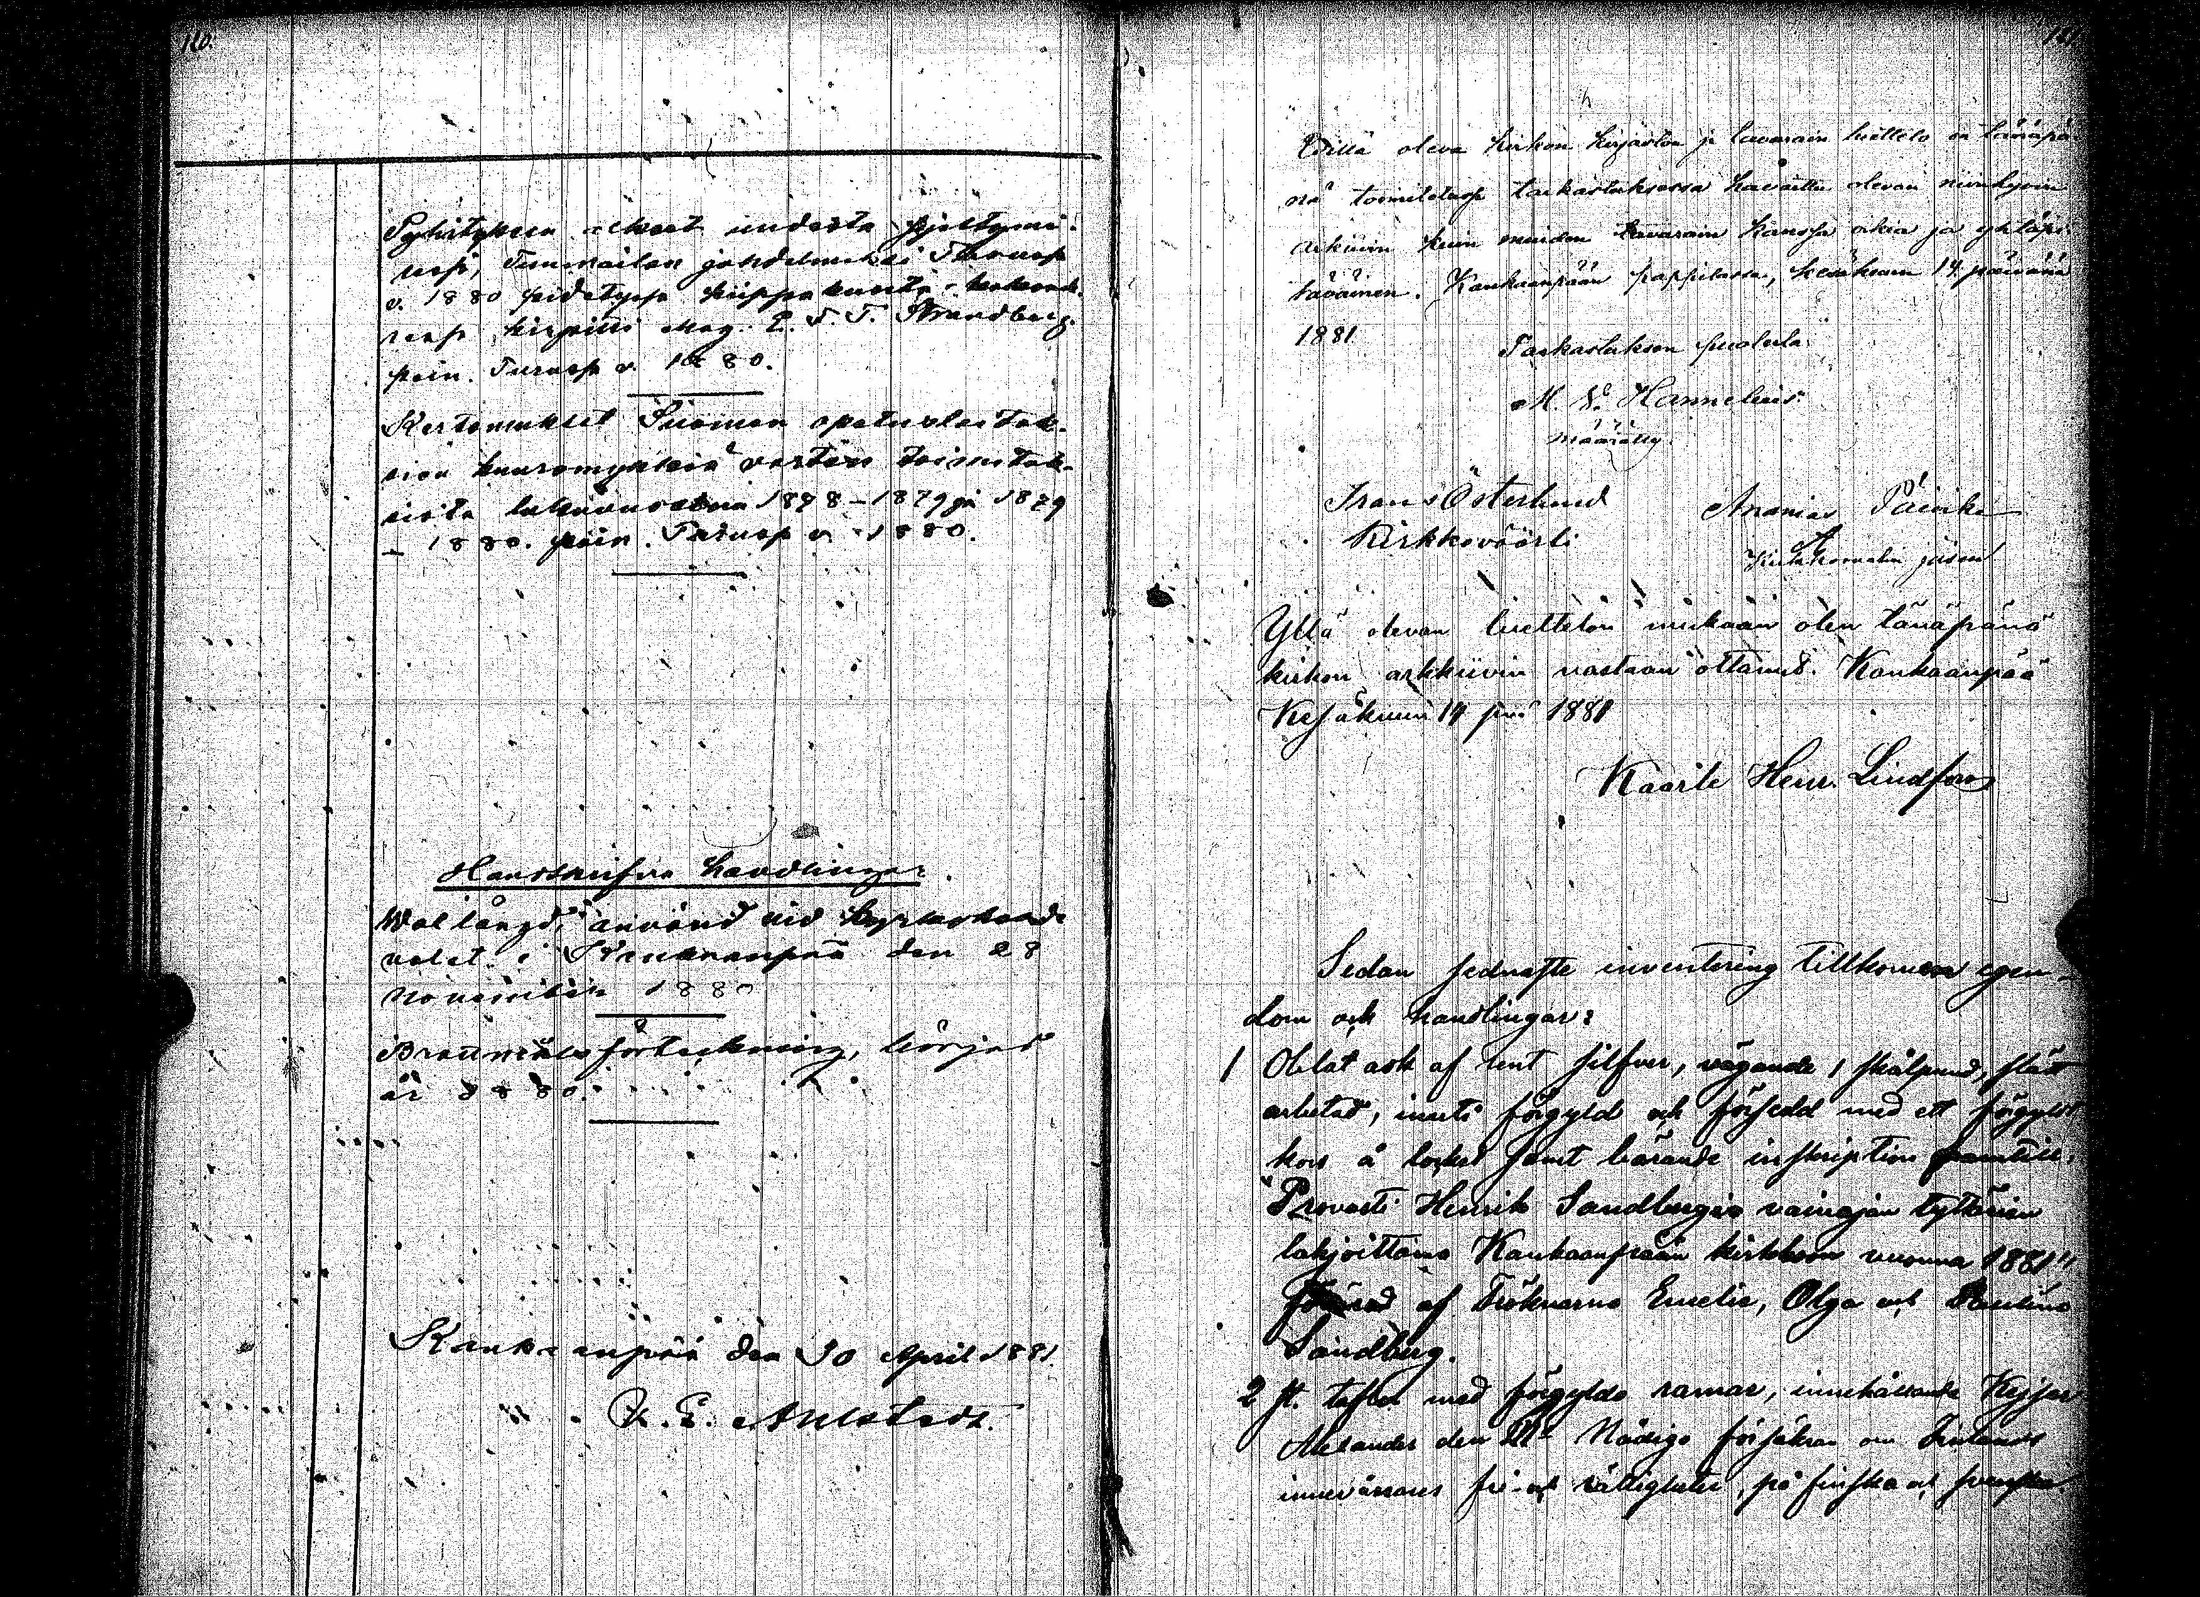 120.
Pyhityksen alkeet uudesta
v. 1880 pidetyssä hiippakunta-kokouk-
sessa, kirjoitti Mag. E. F. T. Strandberg.
pain. Turussa v. 1880.
Kertomukset Suomen opetuslaitok-
sien kuuromykkiä varten toimituk-
sista lukuvuosina 1878–1879 ja 1879
– 1880. pain. Turussa v. 1880.
Handskrifna handlingar.
Wallängd, använd vid kyrkoherde
valet i Kankaanpää den 28
November 1880
Brottmåls förteckning, börjad
år 1880.
Kankaanpää den 30 April 1881.
K. E. Ahlstedt.
121
Edellä oleva kirkon kirjaston ja tavarain luettelo on tänäpä
nä toimitetussa tarkastuksessa havaittu olevan niinhyvin
arkiivin kuin muiden tavarain kanssa oikia ja yhtäpi-
täväinen. Kankaanpään pappilassa, kesäkuun 14 päivänä
1881
Tarkastuksen puolesta
M. V. Hannelius
määrätty.
Frans Österlund
Kirkkoväärti
Ananias Päivike
Kirkkoraadin jäsen
Yllä olevan luettelon mukaan olen tänäpänä
kirkon arkkiivin vastaan ottanut. Kankaanpää
Kesäkuun 14 pnä 1881
Kaarle Henr. Lindfors
Sedan sednaste inventering tillkommen egen-
dom och handlingar:
1 Oblat ask af rent silfver, vägande 1 skålpund, slät
arbetad, inuti förgyld och försedd med ett förgyldt
kors å locket samt bärande inskription
"Provasti Henrik Sandbergin vainajan tyttärien
lahjoittama Kankaanpään kirkkoon vuonna 1881"
af Fröknarna Emelie, Olga och Paulina
Sandberg.
2 st. taflor med förgylda ramar, innehållande Kejsar
Alexander den III Nådiga försäkran om Finlands
innevånares fri- och rättigheter, på finska och svenska.